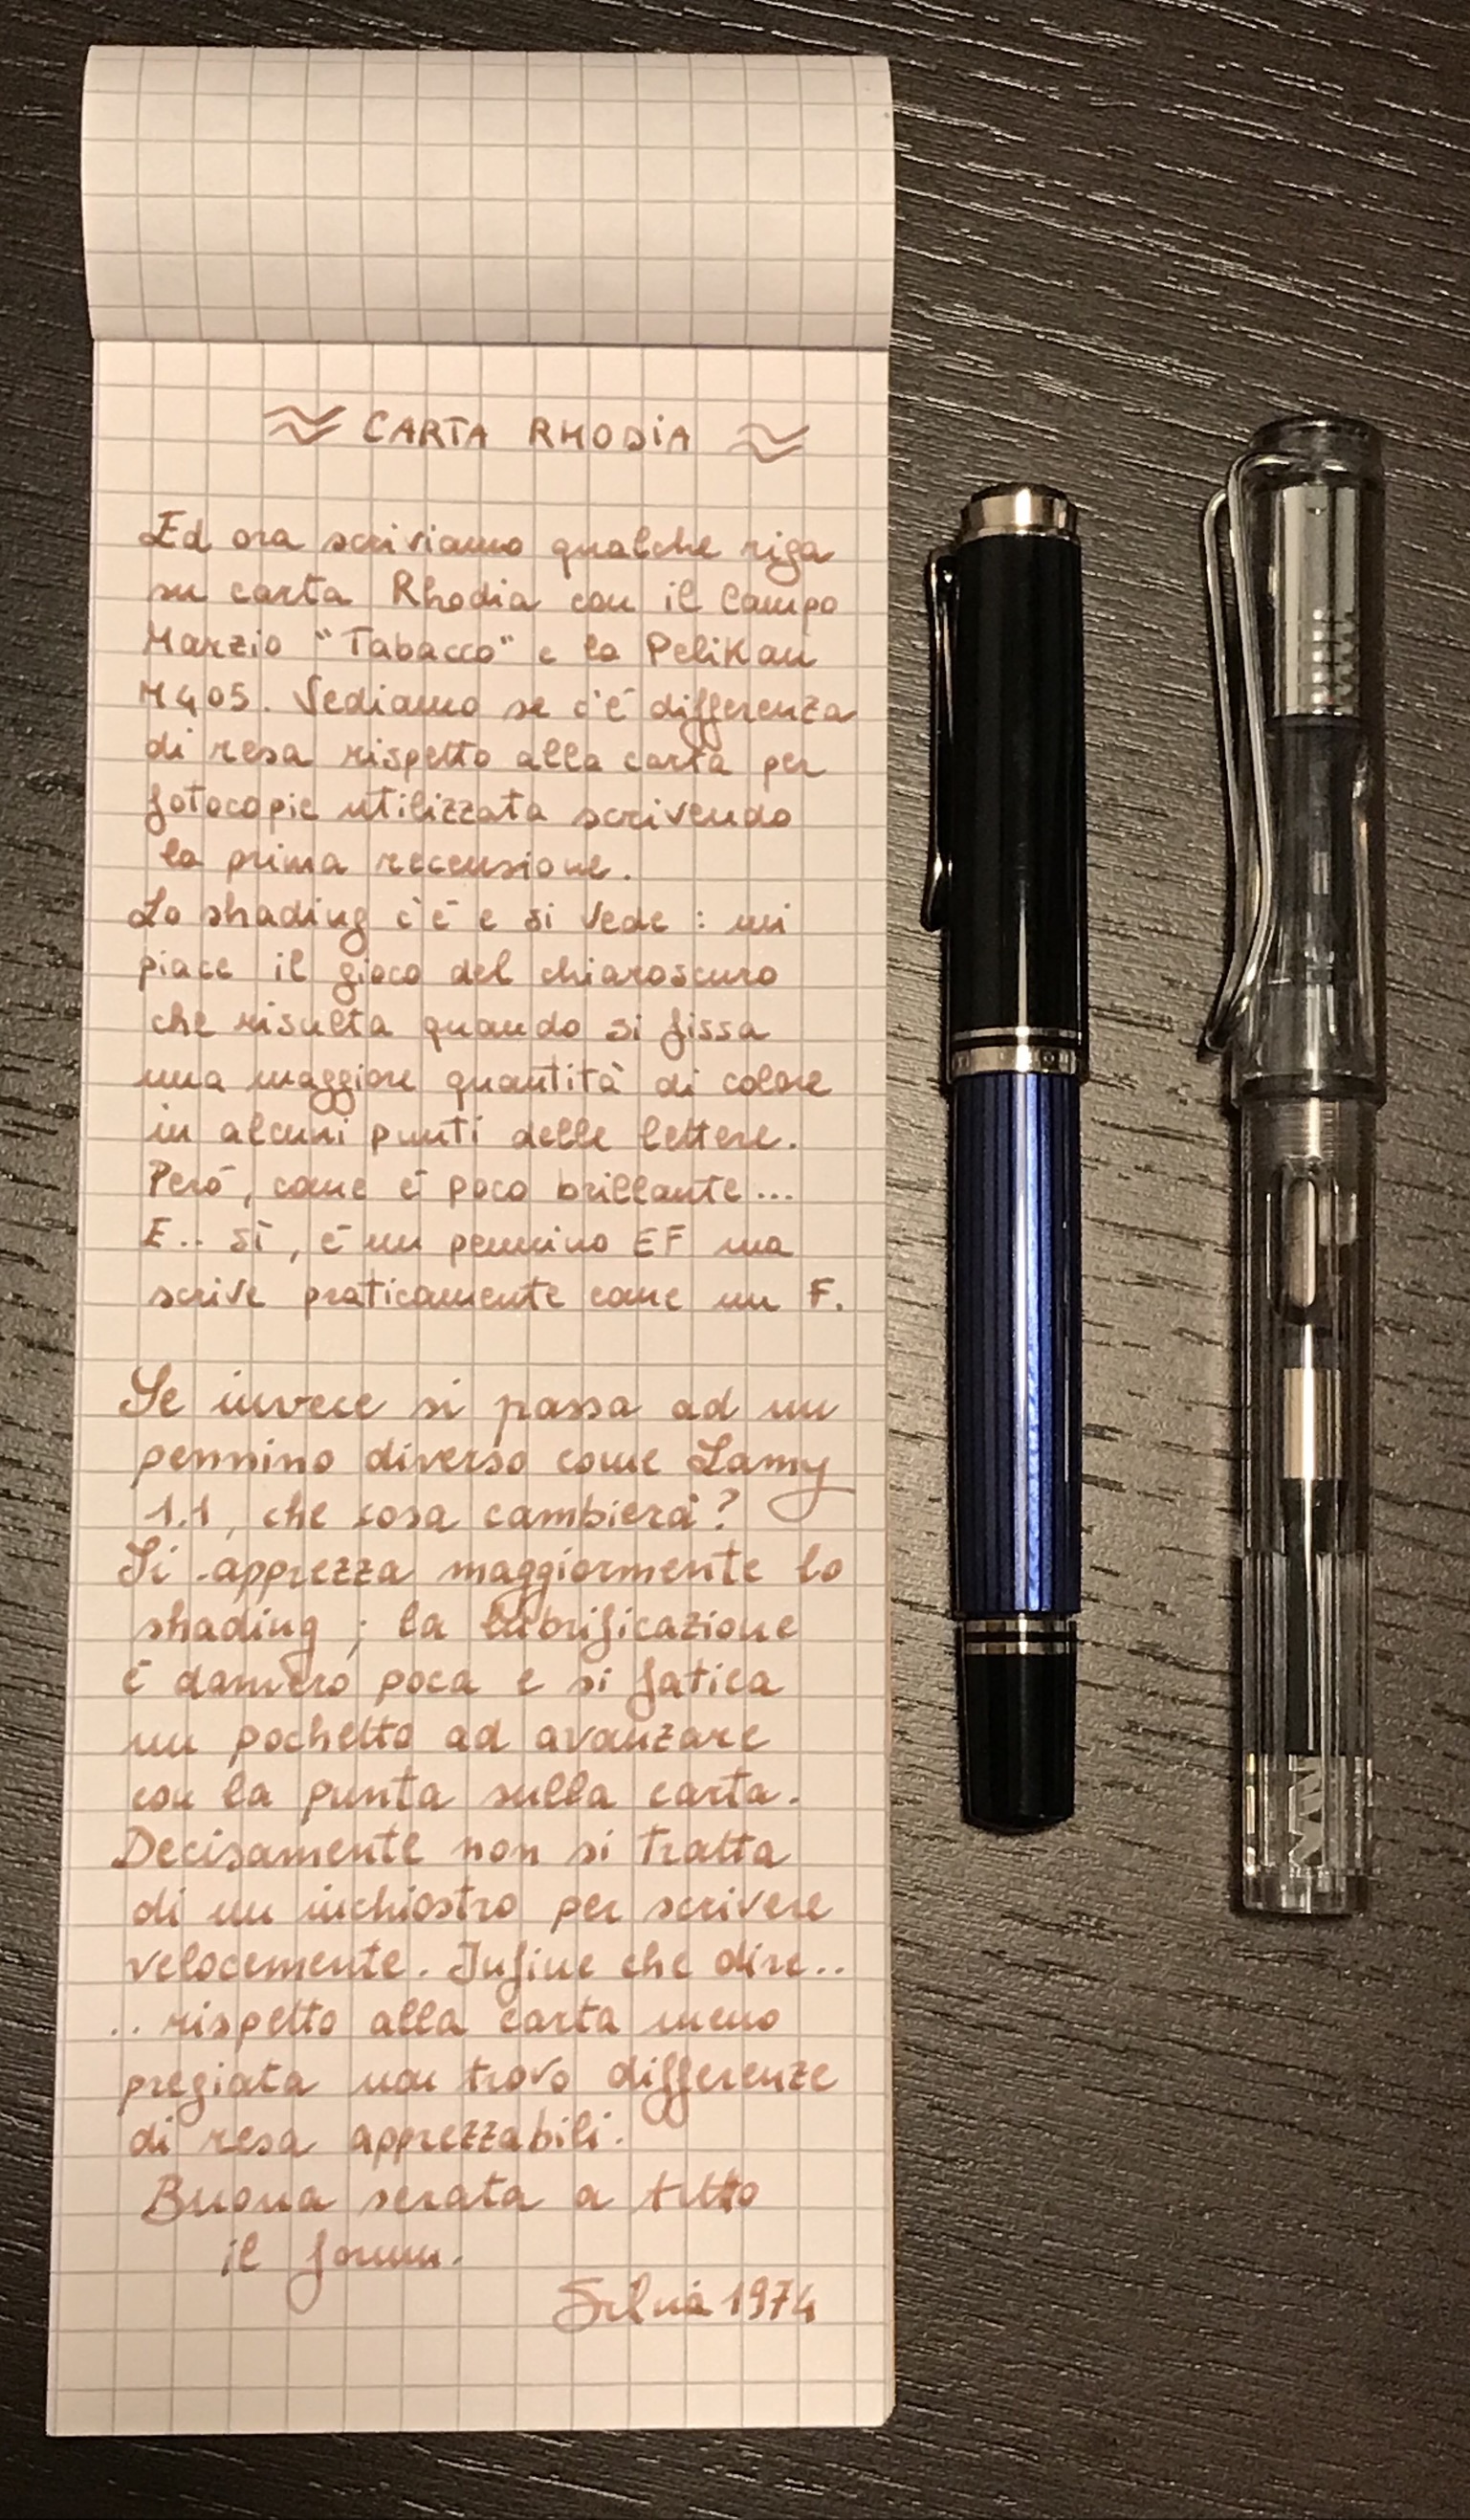 ≈ CARTA RHODIA ≈
Ed ora scriviamo qualche riga
su carta Rhodia con il Campo
Marzio "Tabacco" e la Pelikan
M405. Vediamo se c'è differenza
di resa rispetto alla carta per
fotocopie utilizzata scrivendo
la prima recensione.
Lo shading c'è e si vede : mi
piace il gioco del chiaroscuro
che risulta quando si fissa
una maggiore quantità di colore
in alcuni punti delle lettere.
Però, come è poco brillante...
E.. sì, è un pennino EF ma
scrive praticamente come un F.
Se invece si passa ad un
pennino diverso come Lamy
1.1, che cosa cambierà?
Si apprezza maggiormente lo
shading ; la lubrificazione
è davvero poca e si fatica
un pochetto ad avanzare
con la punta sulla carta.
Decisamente non si tratta
di un inchiostro per scrivere
velocemente. Infine che dire..
.. rispetto alla carta meno
pregiata non trovo differenze
di resa apprezzabili.
Buona serata a tutto
il forum.
Silvia1974
LAMY